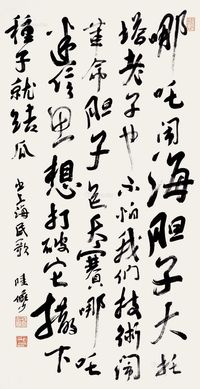 哪吒闹海胆子大托
塔老子也不怕我们技術闹
革命胆子包天賽哪吒
迷信思想打破它撒下
種子就结瓜 书上海民歌 陸儼少